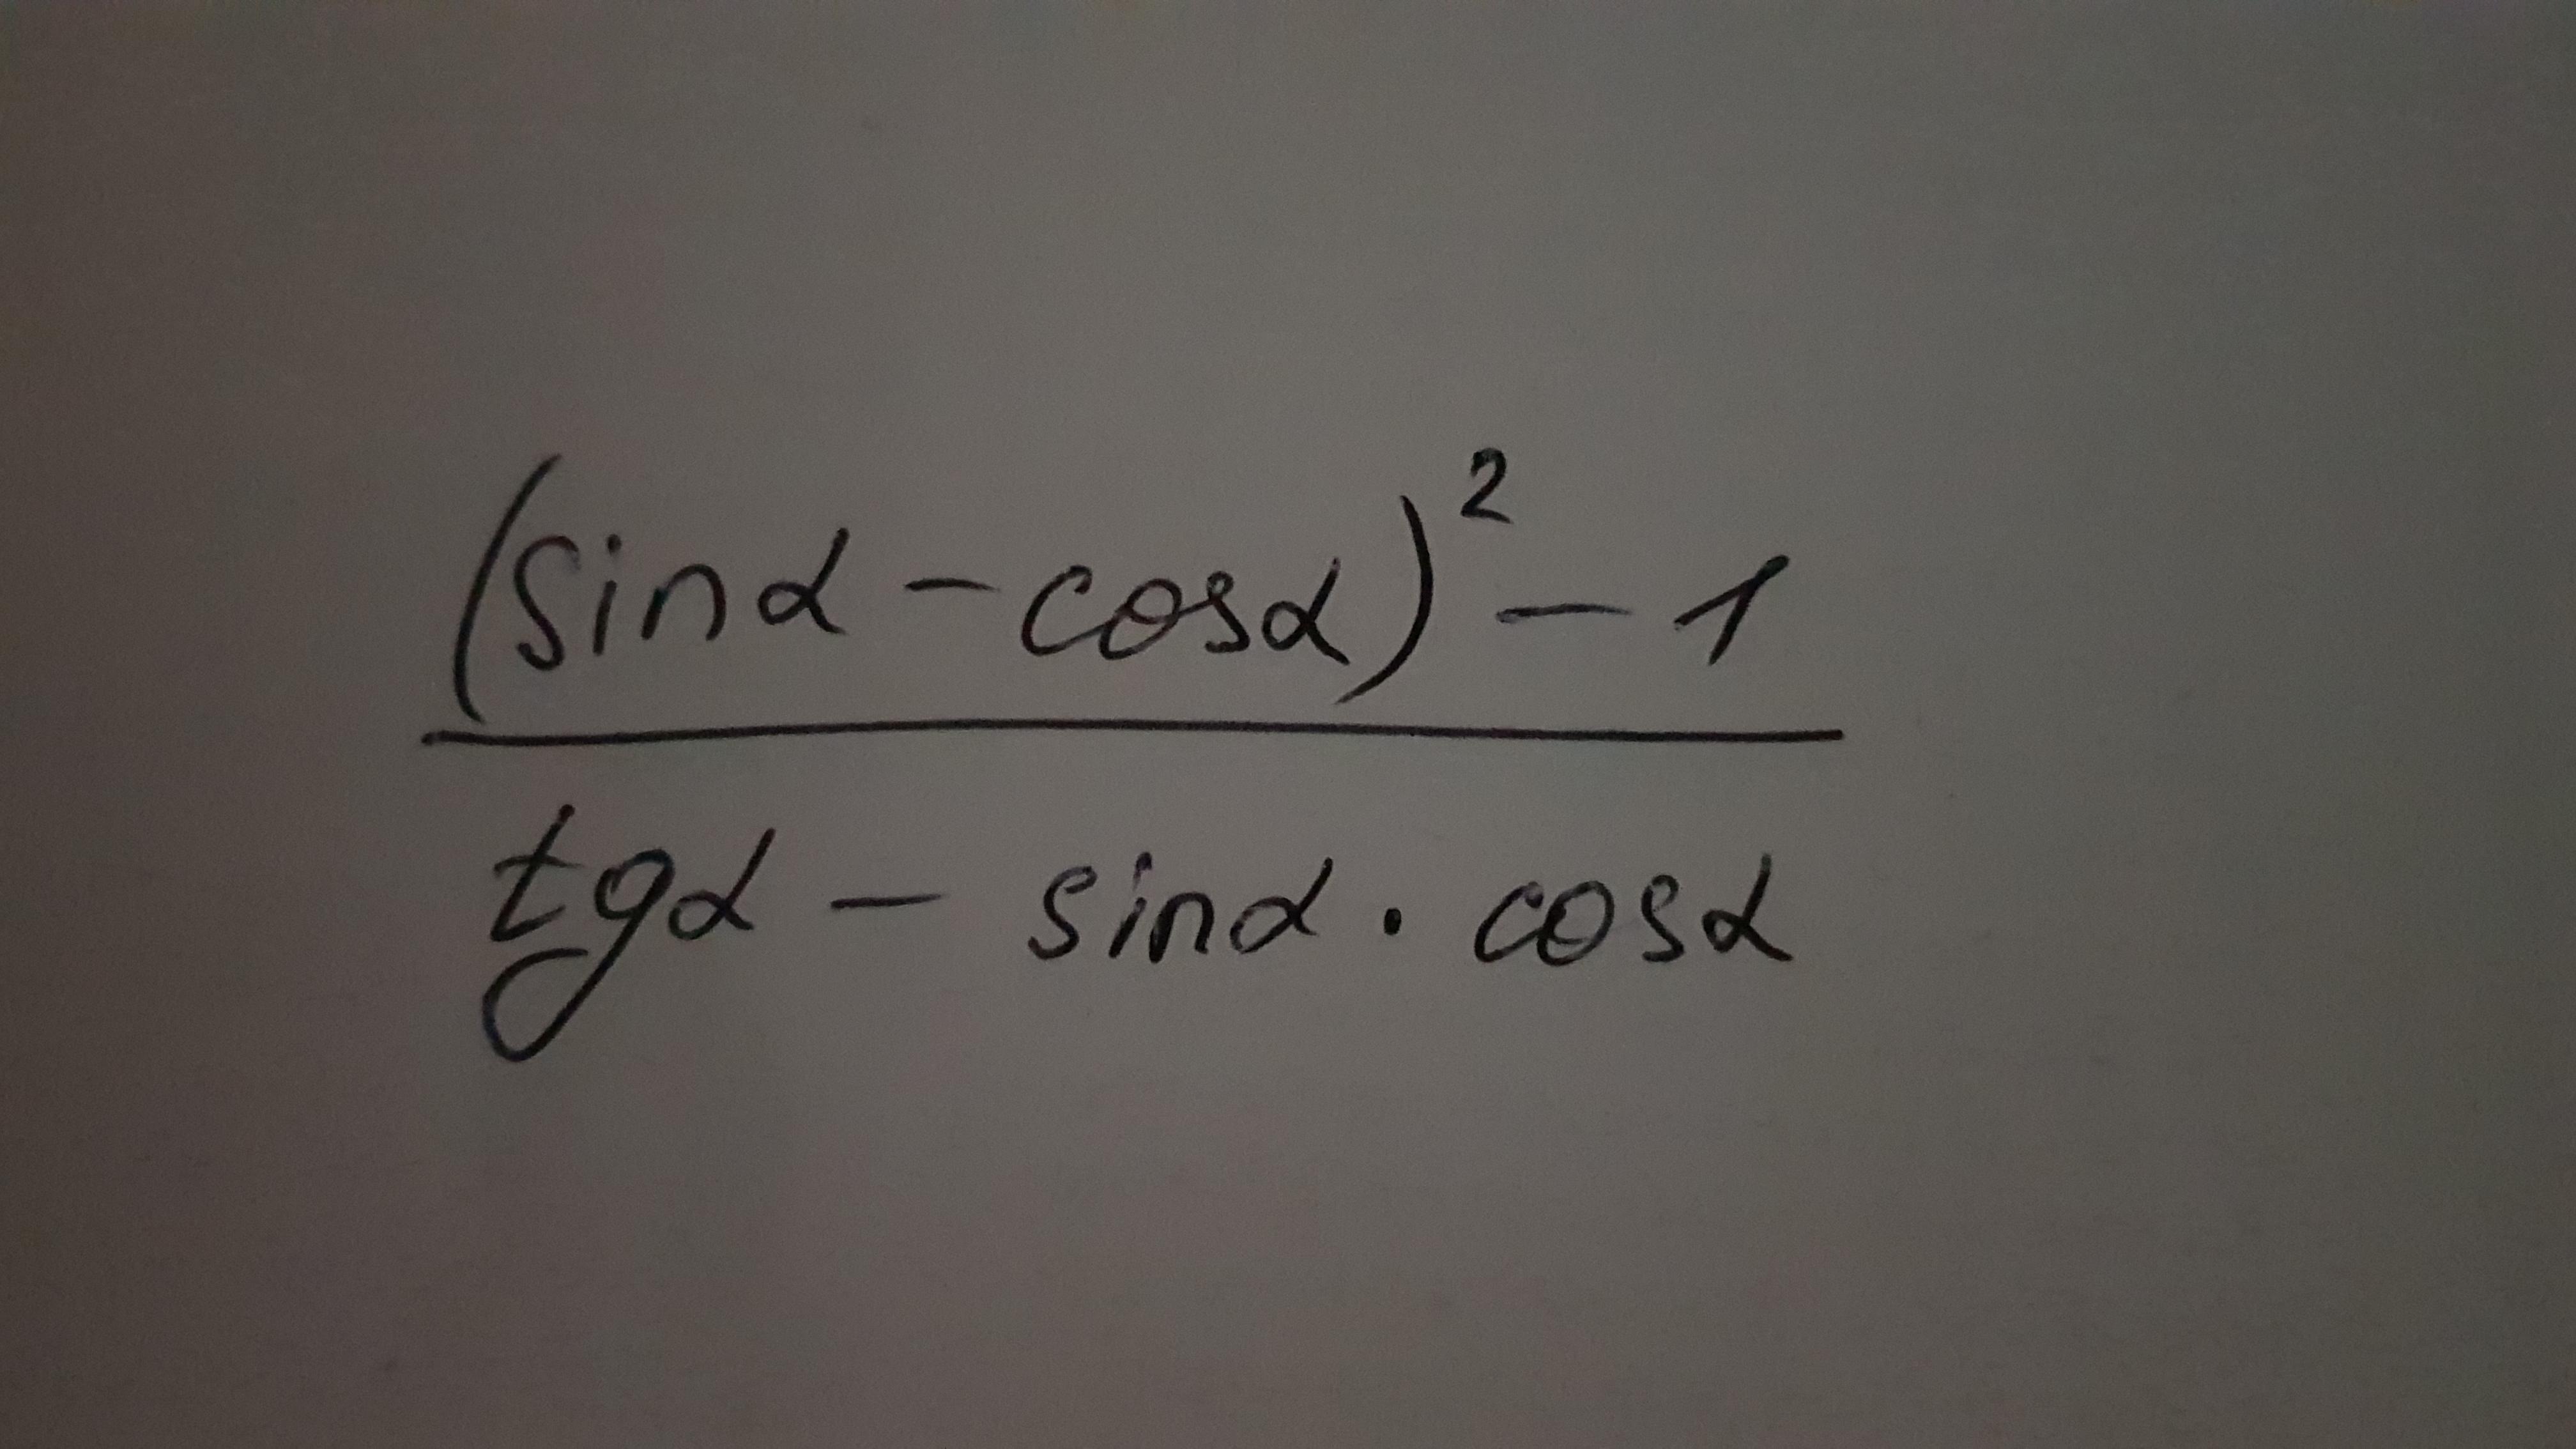 (sinα - cosα)² - 1
tgα - sinα · cosα